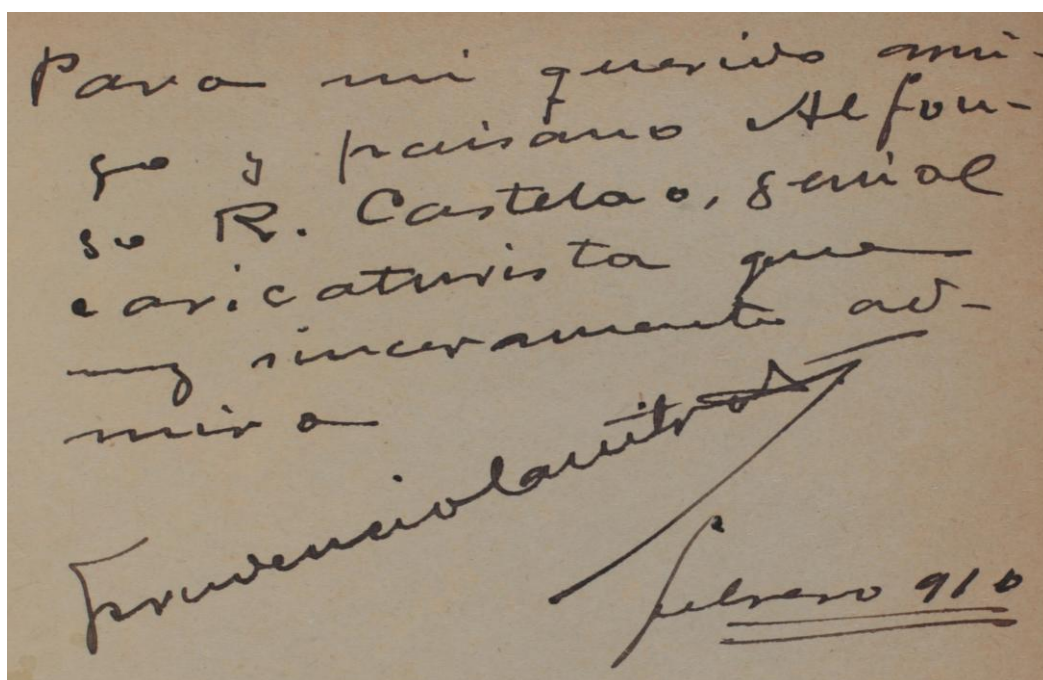 Para mi querido ami-
go y paisano Alfon-
so R. Castelao, genial
caricaturista que
muy sinceramente ad-
mira
Prudencio Canitrot
febrero 910